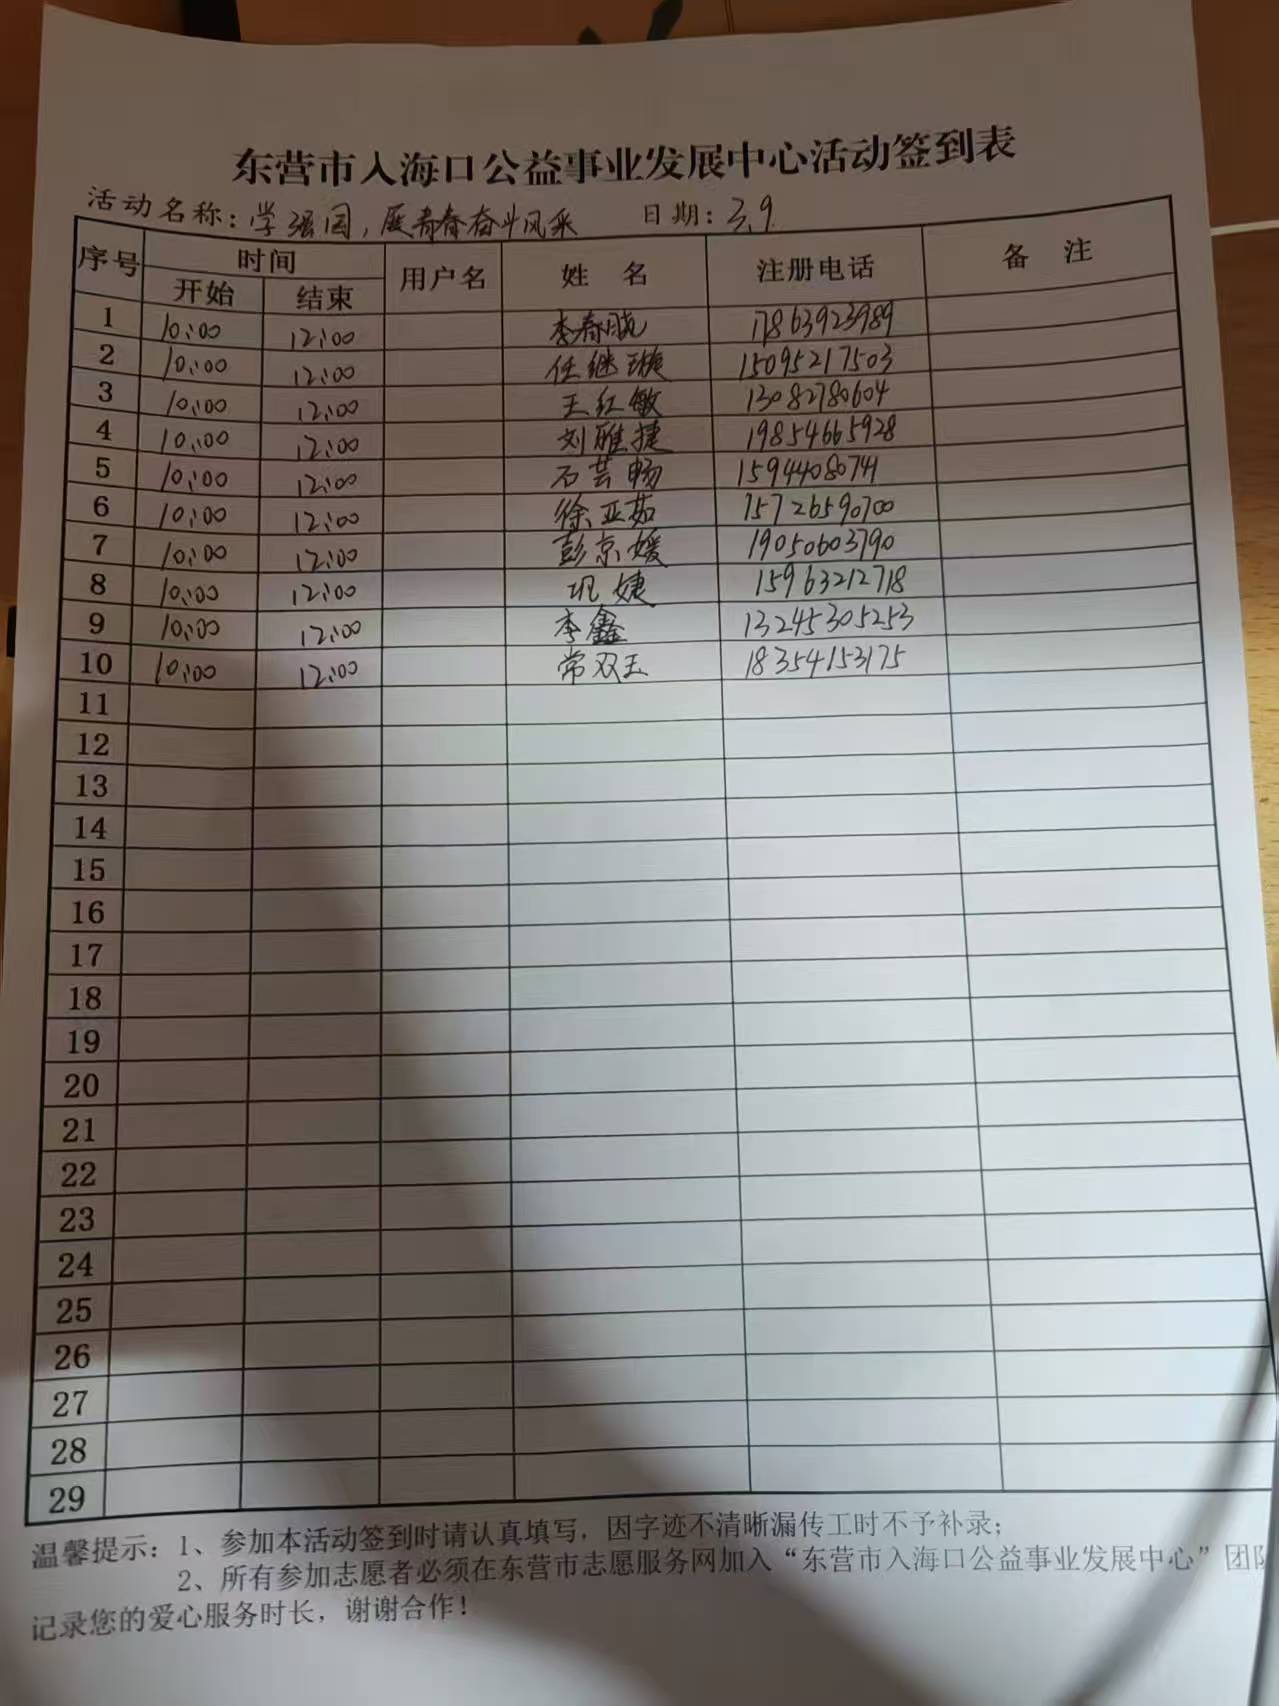 东营市入海口公益事业发展中心活动签到表
活动名称：学强国，展青春奋斗风采 日期：3.9
序号 时间 用户名 姓名 注册电话 备注
开始 结束
1 10:00 12:00 李春晓 17863923989
2 10:00 12:00 任继璇 15095217503
3 10:00 12:00 王红敏 13082780604
4 10:00 12:00 刘雅捷 19854665928
5 10:00 12:00 石芸畅 15944080741
6 10:00 12:00 徐亚茹 15726590700
7 10:00 12:00 彭京媛 19050603790
8 10:00 12:00 巩婕 15963212718
9 10:00 12:00 李鑫 13245305253
10 10:00 12:00 常双玉 18354153175
11
12
13
14
15
16
17
18
19
20
21
22
23
24
25
26
27
28
29
温馨提示：1、参加本活动签到时请认真填写，因字迹不清晰漏传工时不予补录；
2、所有参加志愿者必须在东营市志愿服务网加入“东营市入海口公益事业发展中心”团队
记录您的爱心服务时长，谢谢合作！